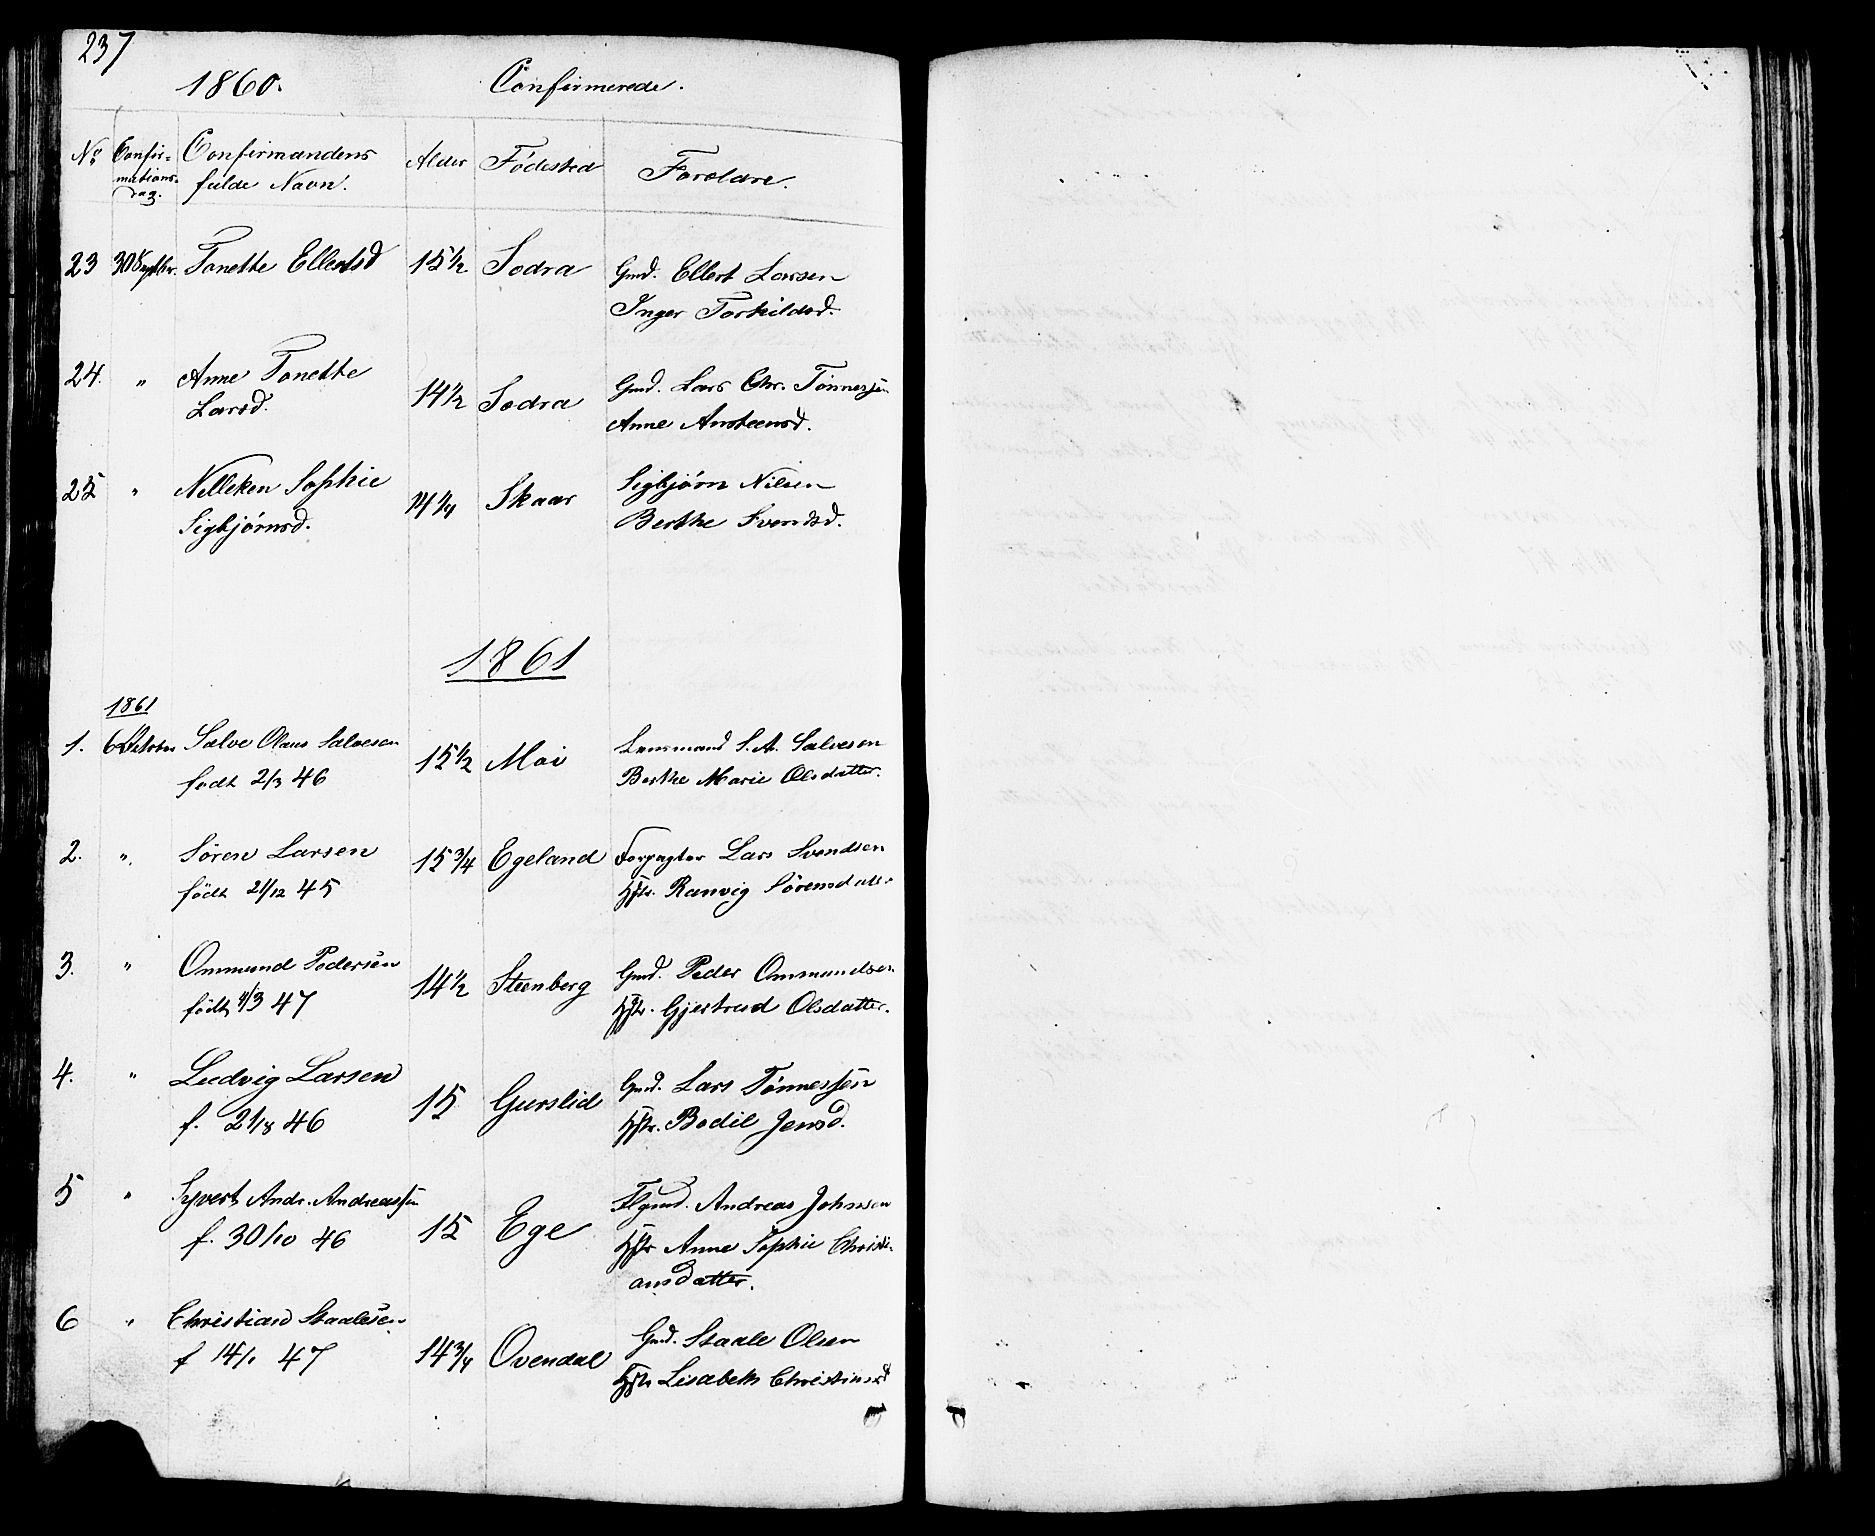 237
1860. Confirmerede.
No Confir-mations-dag. Confirmandens fulde Navn. Alder Fødested Forældre.
23 30 Septbr. Tonette Ellertsd 15 1/2 Sodra Gmd. Ellert Larsen
Inger Torkildsd.
24. " Anne Tonette 14 1/2 Sodra Gmd. Lars Chr. Tönnessen
Larsd. Anne Anstensd.
25 " Nelleken Sophie 14 1/4 Skaar Sigbjørn Nilsen
Sigbjørnsd. Berthe Svendsd.
1861
1861
1. 6 Oktober Salve Olaus Salvesen 15 1/2 Moi Lensmand S. A. Salvesen
født 2/3 46 Berthe Marie Olsdatter.
2. " Sören Larsen 15 3/4 Egeland Forpagter Lars Svendsen
födt 21/12 45 Hstr. Ranvig Sörensdatter
3. " Ommund Pedersen 14 1/2 Steenberg Gmd. Peder Ommundsen
födt 4/3 47 Hstr. Gjertrud Olsdatter.
4. " Ludvig Larsen 15 Gurslid Gmd. Lars Tönnessen
f. 21/8 46 Hstr. Bodil Jensd.
5 " Syvert Andr. Andreassen 15 Ege Flgmd. Andreas Johnsen
f. 30/10 46 Hstr Anne Sophie Christi-
ansdatter.
6 " Christian Staalesen 14 3/4 Ovendal Gmd. Staale Olsen
f 14/1 47 Hstr Lisabeth Christiansd